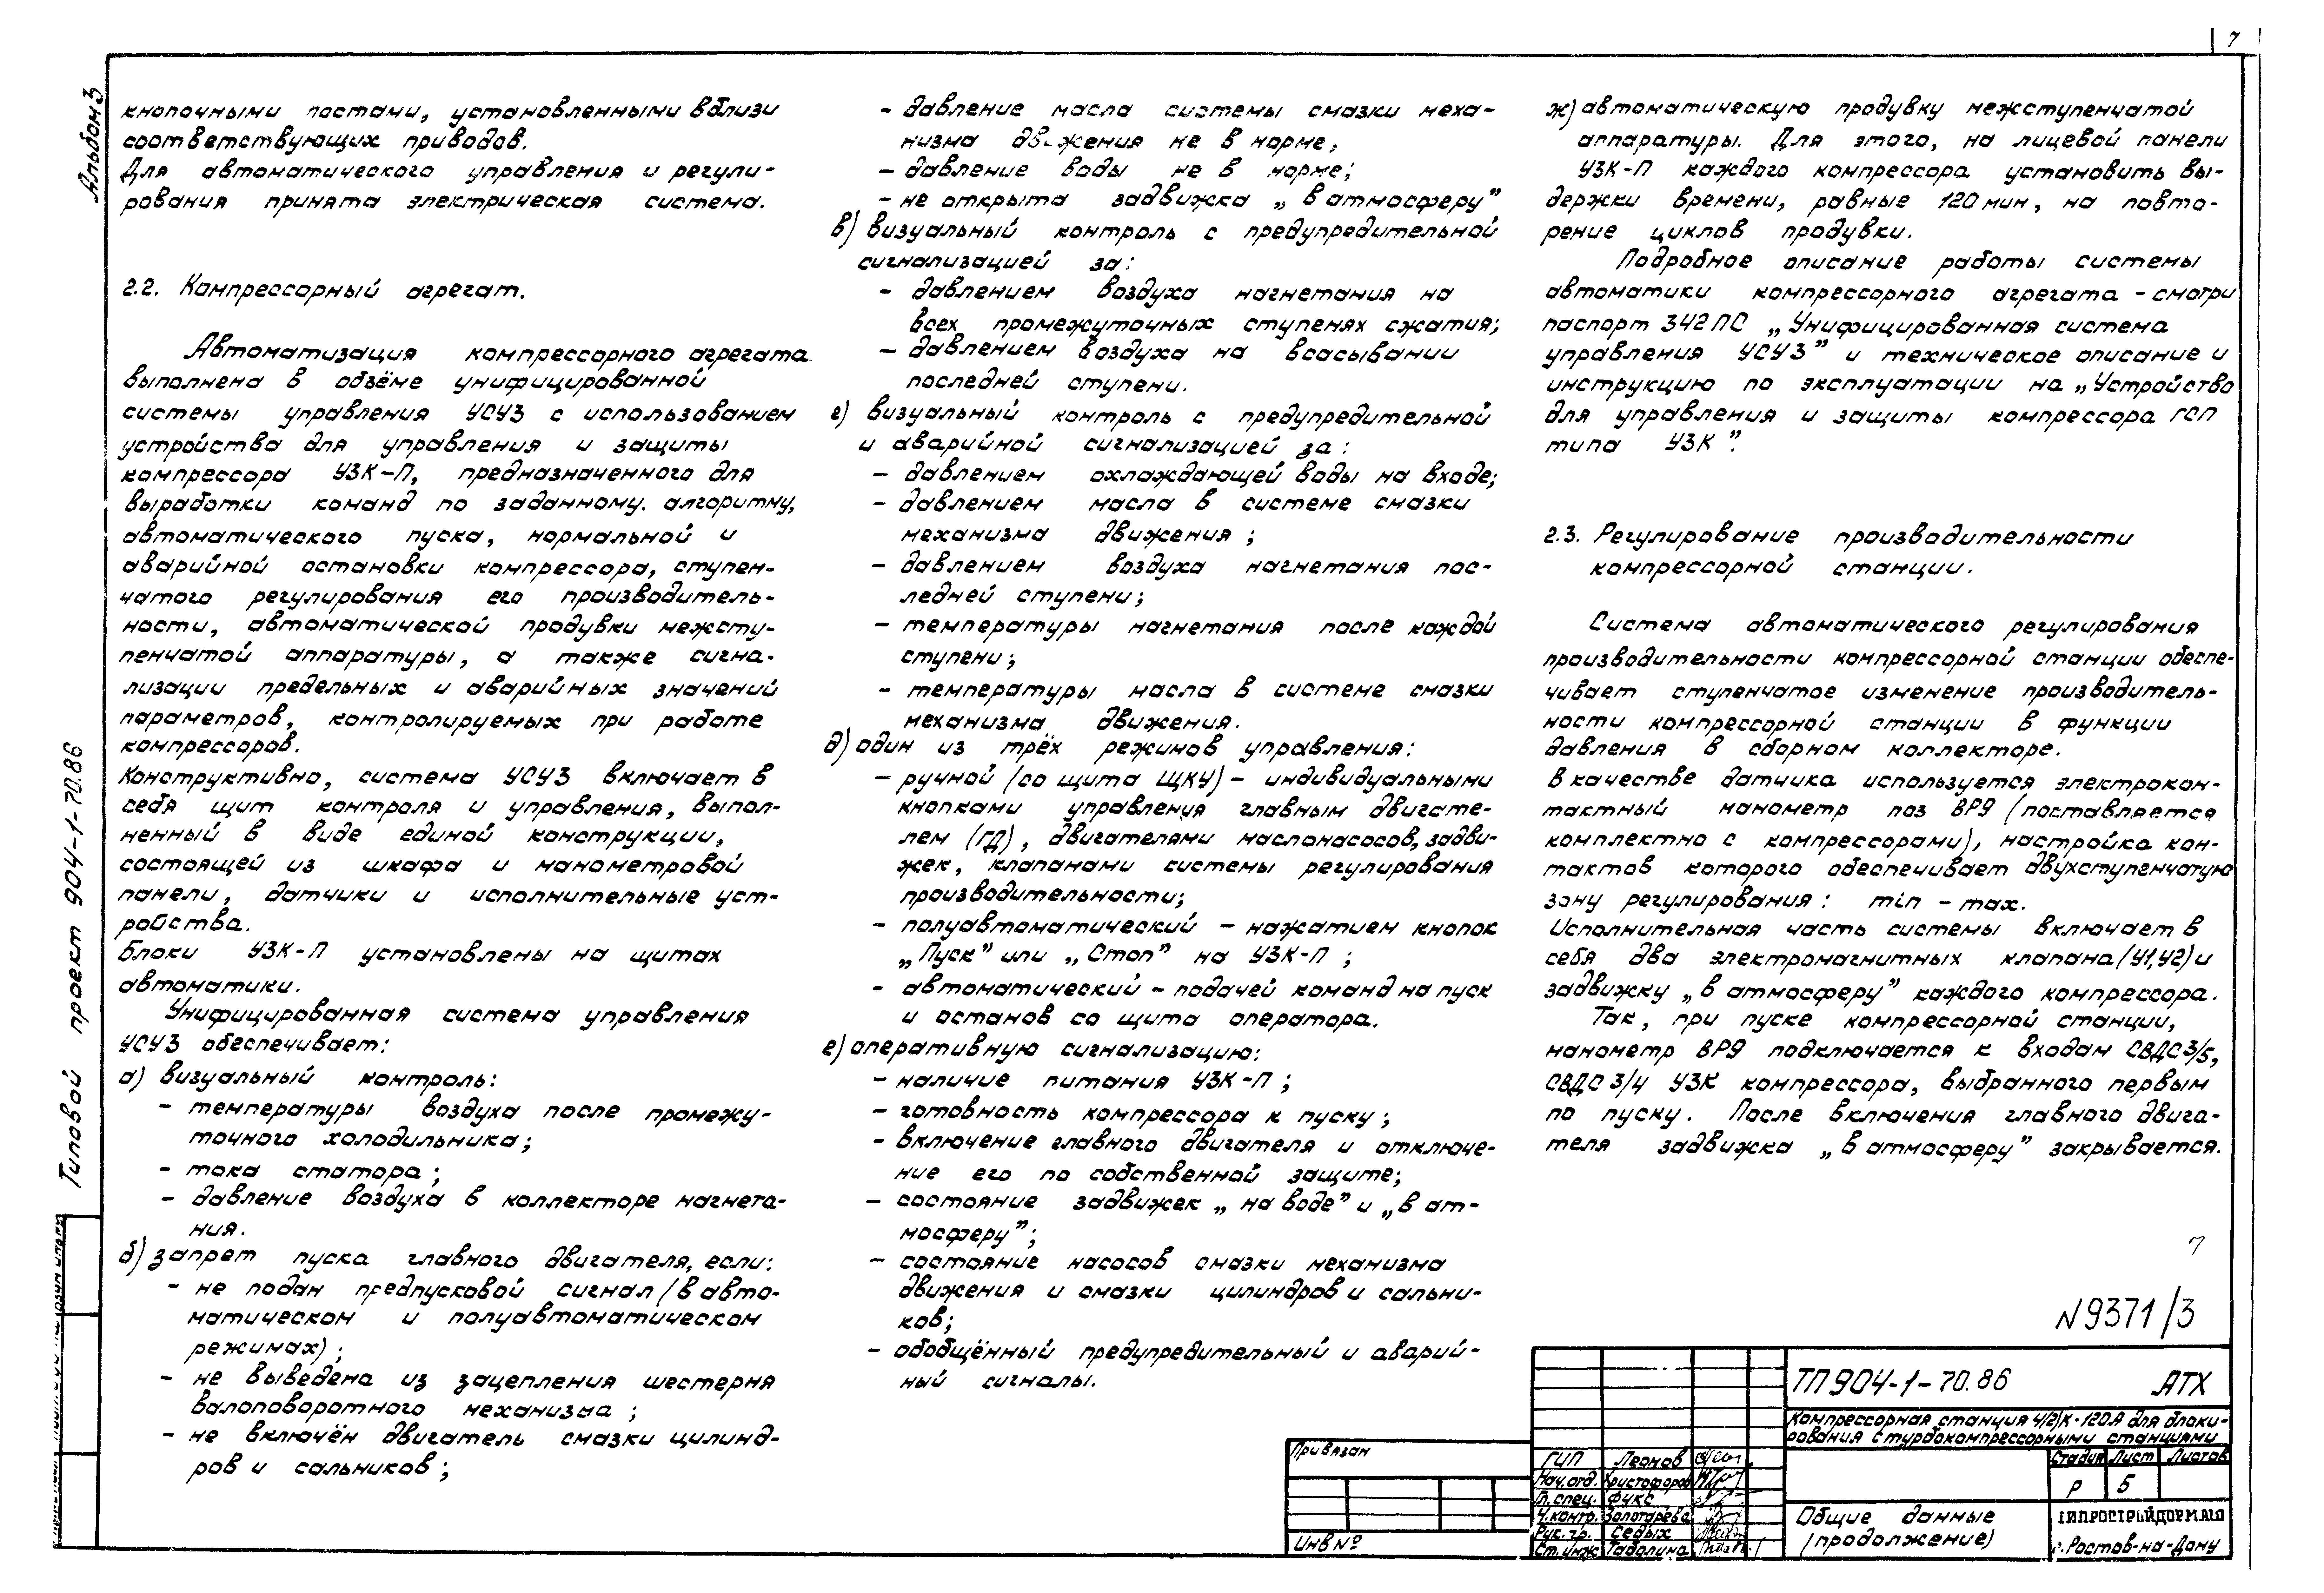 7
Альбом 3
Типовой проект 904-1-70.86
кнопочными постами, установленными вблизи
соответствующих приводов.
Для автоматического управления и регули-
рования принята электрическая система.
2.2. Компрессорный агрегат.
Автоматизация компрессорного агрегата
выполнена в объёме унифицированной
системы управления УСУЗ с использованием
устройства для управления и защиты
компрессора УЗК-П, предназначенного для
выработки команд по заданному. алгоритму,
автоматического пуска, нормальной и
аварийной остановки компрессора, ступен-
чатого регулирования его производитель-
ности, автоматической продувки межсту-
пенчатой аппаратуры, а также сигна-
лизации предельных и аварийных значений
параметров, контролируемых при работе
компрессоров.
Конструктивно, система УСУЗ включает в
себя щит контроля и управления, выпол-
ненный в виде единой конструкции,
состоящей из шкафа и манометровой
панели, датчики и исполнительные уст-
ройства.
Блоки УЗК-П установлены на щитах
автоматики.
Унифицированная система управления
УСУЗ обеспечивает:
а) визуальный контроль:
- температуры воздуха после промежу-
точного холодильника;
- тока статора;
- давление воздуха в коллекторе нагнета-
ния.
б) запрет пуска главного двигателя, если:
- не подан предпусковой сигнал (в авто-
матическом и полуавтоматическом
режимах);
- не выведена из зацепления шестерня
валоповоротного механизма;
- не включён двигатель смазки цилинд-
ров и сальников;
- давление масла системы смазки меха-
низма движения не в норме;
- давление воды не в норме;
- не открыта задвижка „в атмосферу"
в) визуальный контроль с предупредительной
сигнализацией за:
- давлением воздуха нагнетания на
всех промежуточных ступенях сжатия;
- давлением воздуха на всасывании
последней ступени.
г) визуальный контроль с предупредительной
и аварийной сигнализацией за:
- давлением охлаждающей воды на входе;
- давлением масла в системе смазки
механизма движения;
- давлением воздуха нагнетания пос-
ледней ступени;
- температуры нагнетания после каждой
ступени;
- температуры масла в системе смазки
механизма движения.
д) один из трёх режимов управления:
- ручной (со щита ЩКУ) - индивидуальными
кнопками управления главным двигате-
лем (ГД), двигателями маслонасосов, задви-
жек, клапанами системы регулирования
производительности;
- полуавтоматический - нажатием кнопок
„Пуск" или „Стоп" на УЗК-П;
- автоматический - подачей команд на пуск
и останов со щита оператора.
е) оперативную сигнализацию:
- наличие питания УЗК-П;
- готовность компрессора к пуску;
- включение главного двигателя и отключе-
ние его по собственной защите;
- состояние задвижек „на воде" и „в ат-
мосферу";
- состояние насосов смазки механизма
движения и смазки цилиндров и сальни-
ков;
- обобщённый предупредительный и аварий-
ный сигналы.
ж) автоматическую продувку межступенчатой
аппаратуры. Для этого, на лицевой панели
УЗК-П каждого компрессора установить вы-
держки времени, равные 120 мин, на повто-
рение циклов продувки.
Подробное описание работы системы
автоматики компрессорного агрегата - смотри
паспорт 342 ПС „Унифицированная система
управления УСУЗ" и техническое описание и
инструкцию по эксплуатации на „Устройство
для управления и защиты компрессора ГСП
типа УЗК".
2.3. Регулирование производительности
компрессорной станции.
Система автоматического регулирования
производительности компрессорной станции обеспе-
чивает ступенчатое изменение производитель-
ности компрессорной станции в функции
давления в сборном коллекторе.
В качестве датчика используется электрокон-
тактный манометр поз ВР9 (поставляется
комплектно с компрессорами), настройка кон-
тактов которого обеспечивает двухступенчатую
зону регулирования: min - max.
Исполнительная часть системы включает в
себя два электромагнитных клапана (У1,У2) и
задвижку „в атмосферу" каждого компрессора.
Так, при пуске компрессорной станции,
манометр ВР9 подключается к входам СВДС 3/5,
СВДС 3/4 УЗК компрессора, выбранного первым
по пуску. После включения главного двига-
теля задвижка „в атмосферу" закрывается.
7
N 9371/3
ТП 904-1-70.86 АТХ
Компрессорная станция 4(2)К-120А для блоки-
рования с турбокомпрессорными станциями
Привязан
Инв №
ГИП Леонов
Нач.отд. Христофоров
Гл.спец. Фукс
Н.контр. Золотарёва
Рук.гр. Седых
Ст.инж Табалина
Стадия Лист Листов
Р 5
Общие данные
(продолжение)
ГИПРОСТРОЙДОРМАШ
г.Ростов-на-Дону